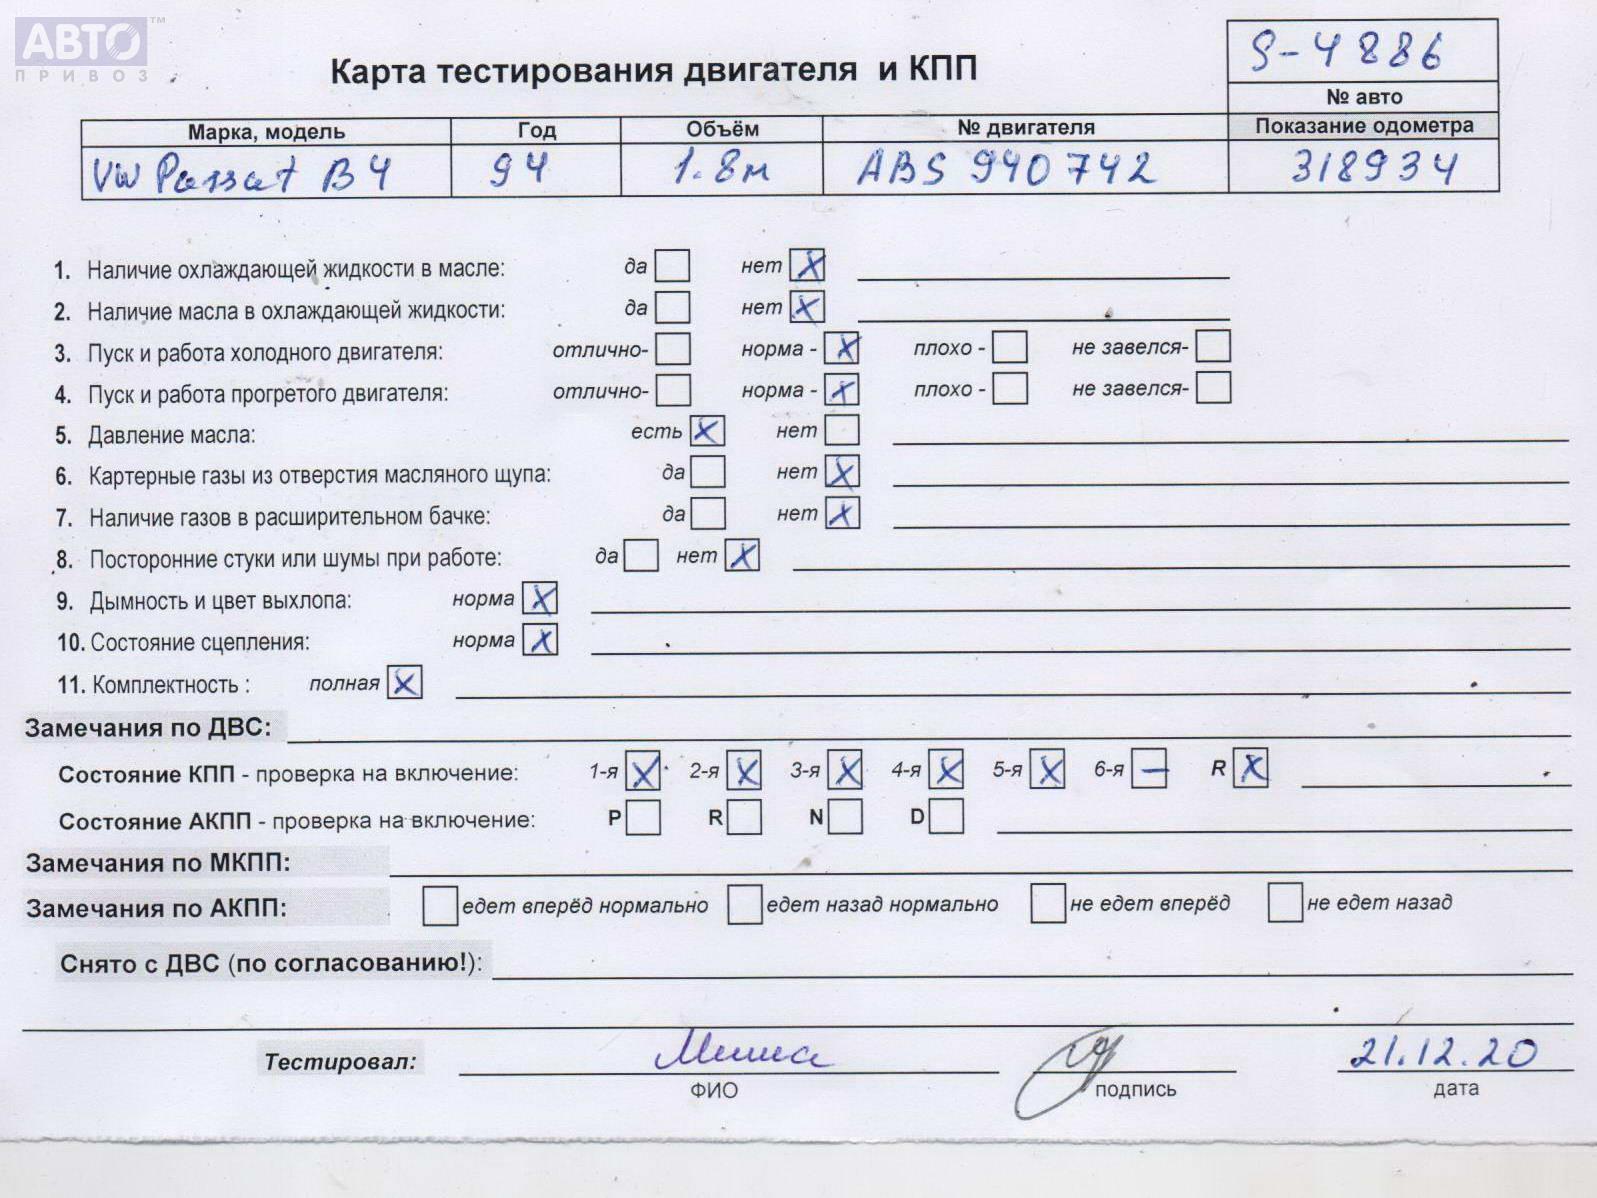 АВТО™
ПРИВОЗ
S-4886
Карта тестирования двигателя и КПП
№ авто
Марка, модель Год Объём № двигателя Показание одометра
VW Passat B4 94 1.8м ABS 940742 318934
1. Наличие охлаждающей жидкости в масле: да нет X
2. Наличие масла в охлаждающей жидкости: да нет X
3. Пуск и работа холодного двигателя: отлично- норма - X плохо - не завелся-
4. Пуск и работа прогретого двигателя: отлично- норма - X плохо - не завелся-
5. Давление масла: есть X нет
6. Картерные газы из отверстия масляного щупа: да нет X
7. Наличие газов в расширительном бачке: да нет X
8. Посторонние стуки или шумы при работе: да нет X
9. Дымность и цвет выхлопа: норма X
10. Состояние сцепления: норма X
11. Комплектность : полная X
Замечания по ДВС:
Состояние КПП - проверка на включение: 1-я X 2-я X 3-я X 4-я X 5-я X 6-я — R X
Состояние АКПП - проверка на включение: P R N D
Замечания по МКПП:
Замечания по АКПП: едет вперёд нормально едет назад нормально не едет вперёд не едет назад
Снято с ДВС (по согласованию!):
Тестировал: Миша 21.12.20
ФИО подпись дата